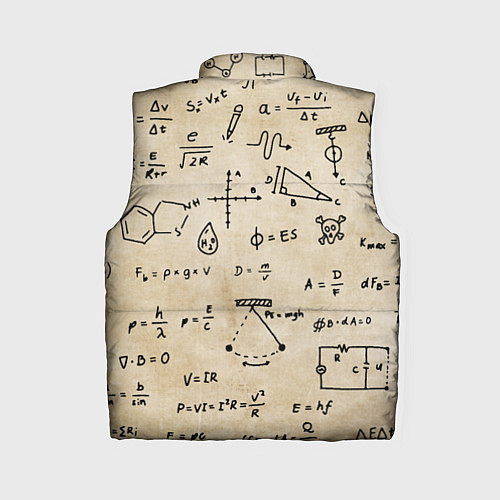 = Δv/Δt
S = Vxt
a = (Uf - Ui)/Δt
= E/(R+r)
e/√2R
A
B
D
A
B
C
C
NH
S
H₂O
ϕ = ES
Kmax =
Fb = ρ×g×V
D = m/v
A = D/F
dFB =
p = h/λ
p = E/c
PE = mgh
∯B·dA=0
∇·B=0
R
C
u
= b/sin
V = IR
P=VI=I²R=V²/R
E = hf
=ΣRi
E = pc
Q
ΔEΔt